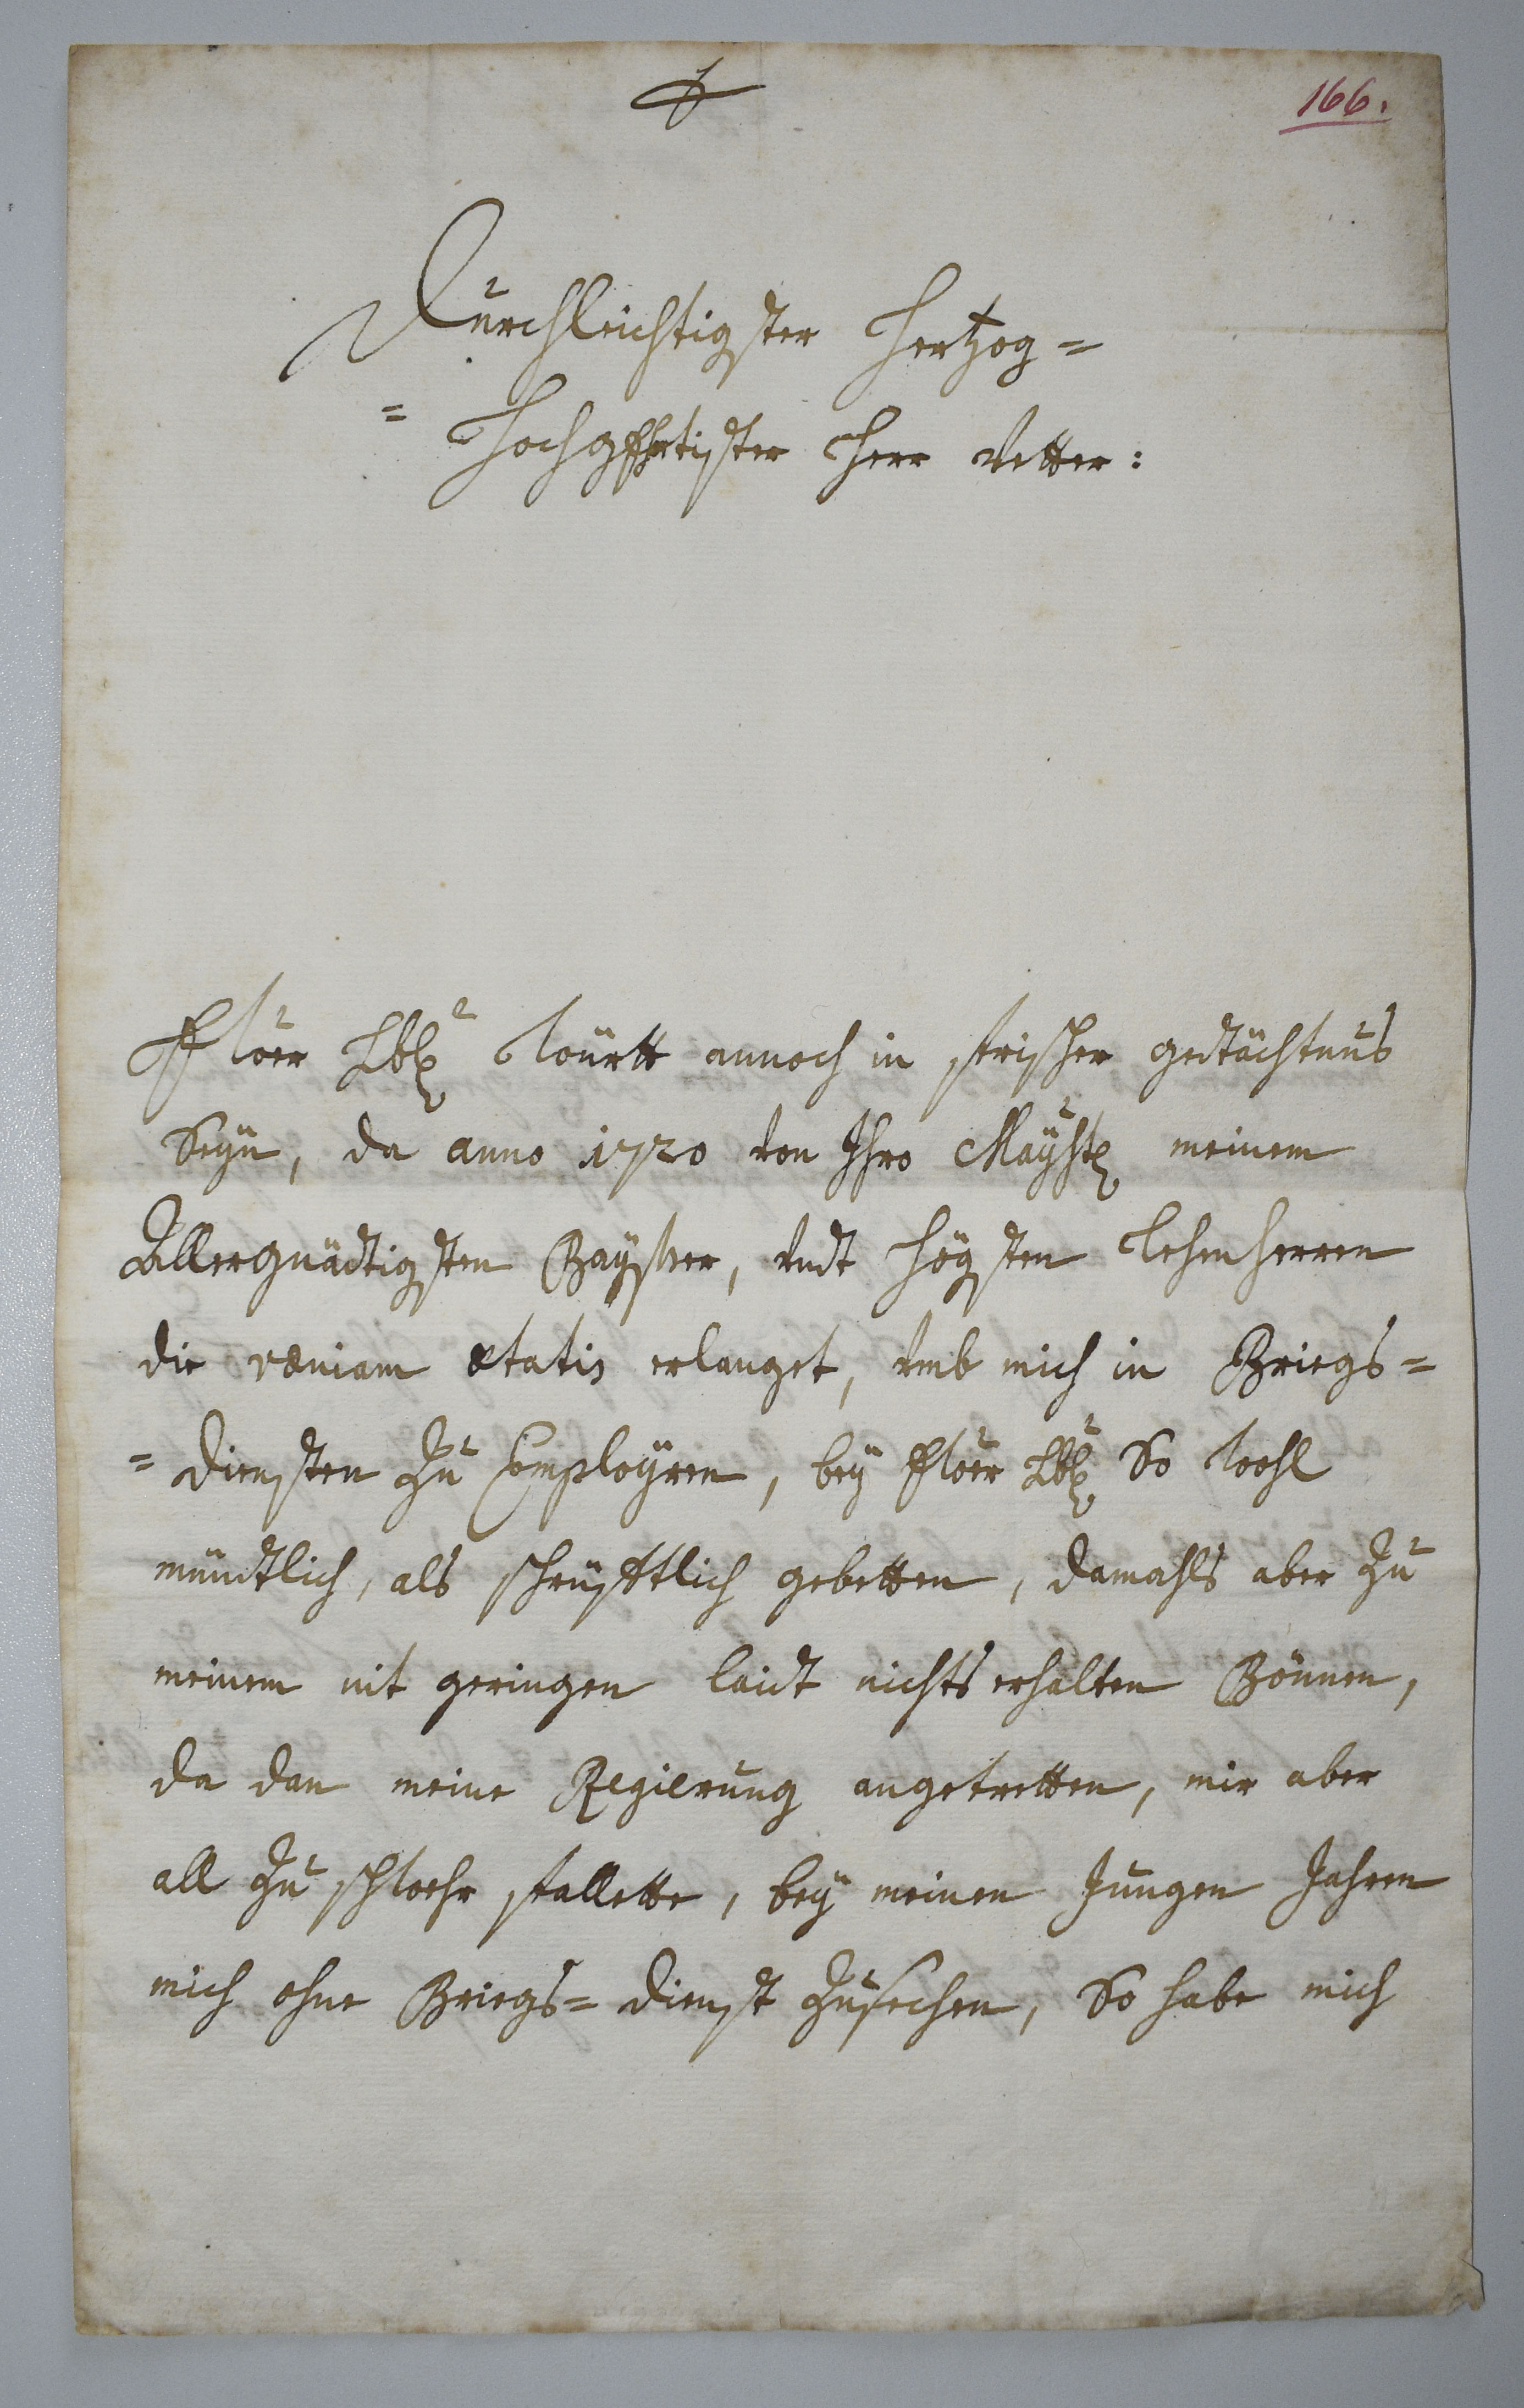 166.
Durchleichtigster Hertzog=
= Hochgehrtister Herr Vetter:
Ewer Lbd württ annoch in frischer gedtächtnus
Seyn, da anno 1720 von Ihro Mayst meinem
Allergnädtigsten Kayser, vndt högsten Lehenherren
die væniam ætatis erlanget, vmb mich in Kriegs=
= Diensten zu Employren, bey Ewer Lbd So wohl
mündtlich, als schrüfftlich gebetten, damahls aber zu
meinem nit geringen laidt nichts erhalten Können,
da dan meine Regierung angetretten, mir aber
all zu schwehr fallette, bey meinen Jungen Jahren
mich ohne Kriegs= Dienst zusechen, So habe mich